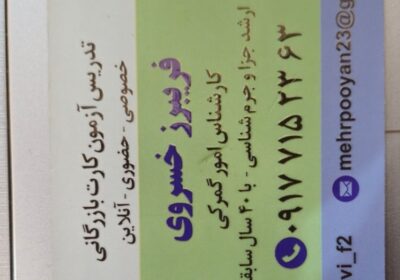 تدریس آزمون کارت بازرگانی
خصوصی - حضوری - آنلاین
فریبرز خسروی
کارشناس امور گمرکی
ارشد جزا و جرم شناسی - با ۴۰ سال سابقه
۰۹۱۷ ۷۱۵ ۲۳ ۶۳
vi_f2 mehrpooyan23@g